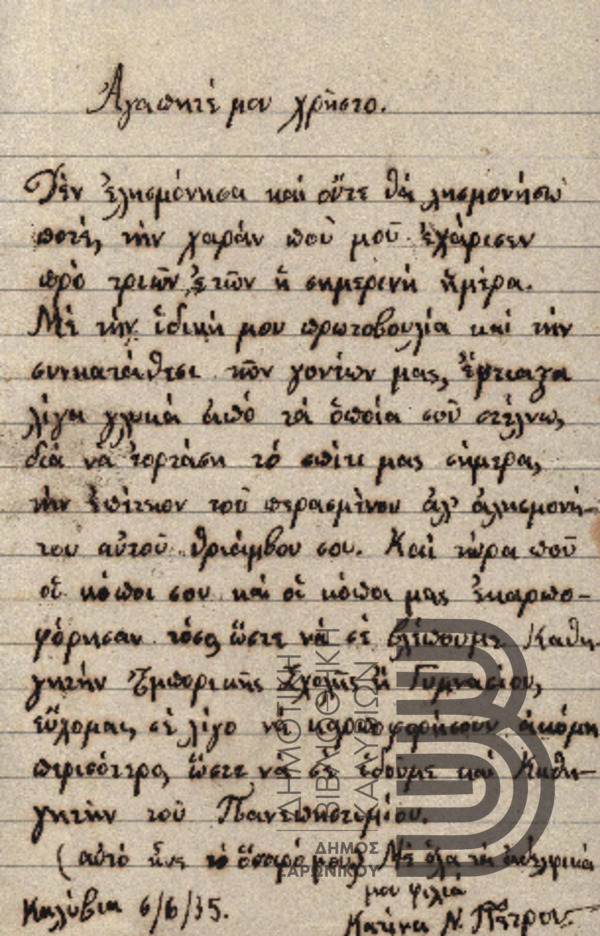 Ἀγαπητέ μου χρῆστο.
Δὲν ἐλησμόνησα καὶ οὔτε θὰ λησμονήσω
ποτέ, τὴν χαρὰν ποῦ μοῦ ἐχάρισεν
πρὸ τριῶν ἐτῶν ἡ σημερινὴ ἡμέρα.
Μὲ τὴν ἰδική μου πρωτοβουλία καὶ τὴν
συνκατάθεσι τῶν γονέων μας, ἔφτιαγα
λίγα γλυκὰ ἀπὸ τὰ ὁποῖα σοῦ στέλνω,
διὰ νὰ ἑορτάση τὸ σπίτι μας σήμερα,
τὴν ἐπέτειον τοῦ περασμένου ἀλ' ἀλησμονή-
του αὐτοῦ θριάμβου σου. Καὶ τώρα ποῦ
οἱ κόποι σου καὶ οἱ κόποι μας ἐκαρπο-
φόρησαν τόσο, ὥστε νὰ σὲ βλέπουμε Καθη-
γητὴν Ἐμπορικῆς Σχολῆς ἢ Γυμνασίου,
εὔχομαι, σὲ λίγο νὰ καρποφορήσουν ἀκόμη
περισότερο, ὥστε νὰ σὲ ἰδοῦμε καὶ Καθη-
γητὴν τοῦ Πανεπιστημίου.
(αὐτὸ εἶνε τὸ ὄνειρό μου) Μὲ ὅλα τὰ ἀδελφικά
μου φιλιά
Καλύβια 6/6/35.
Κατίνα Ν. Πέτρου
ΔΗΜΟΤΙΚΗ
ΒΙΒΛΙΟΘΗΚΗ
ΚΑΛΥΒΙΩΝ
ΔΗΜΟΣ
ΣΑΡΩΝΙΚΟΥ